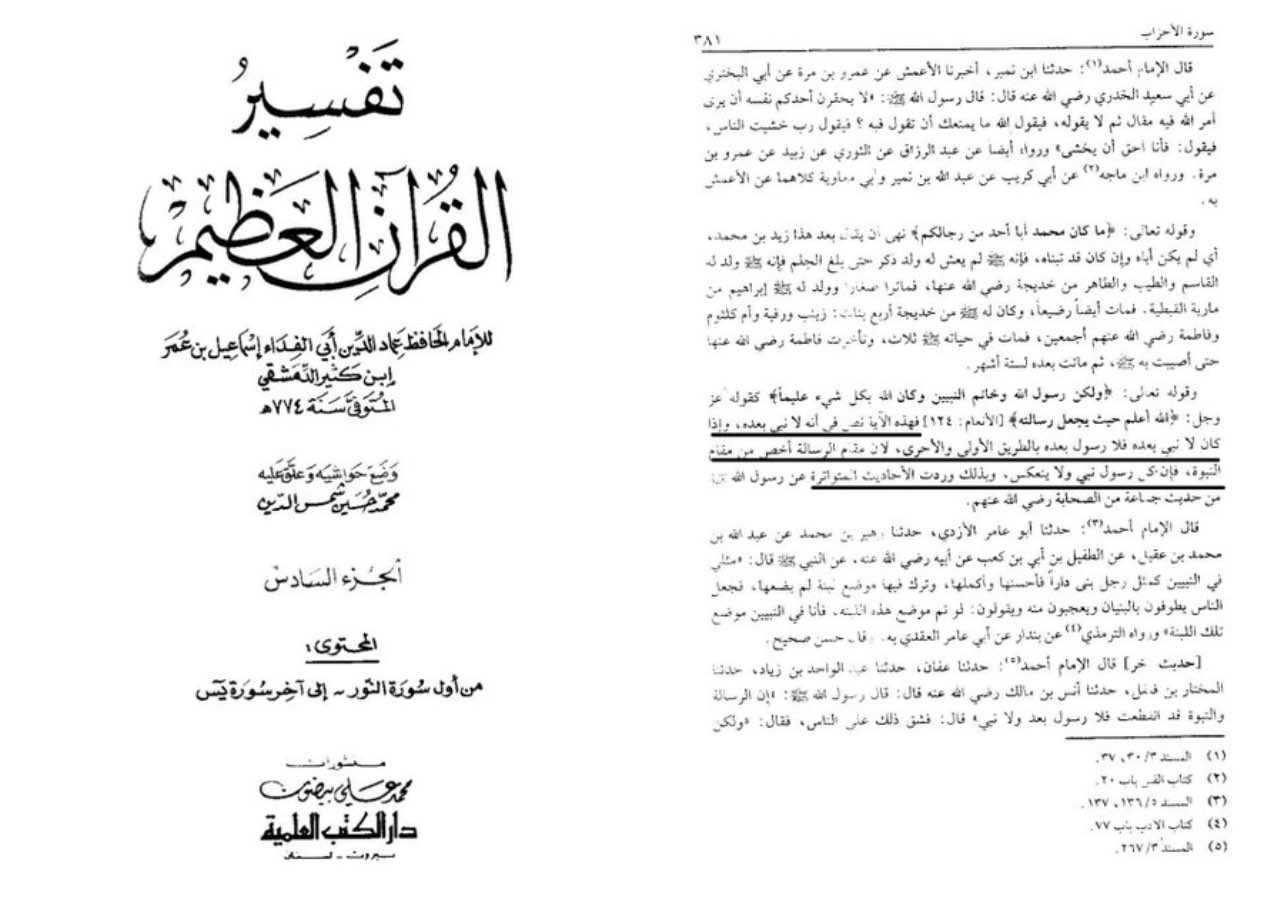 تَفْسِيرُ
القُرآنِ العَظِيمِ
للإمَام الحَافظ عِمَاد الدِّين أبي الفِدَاء إسمَاعيل بن عُمَر
ابن كَثير الدِّمَشقي
المُتَوَفّى سَنَة ٧٧٤هـ
وَضَعَ حَوَاشيَه وَعَلّق عَلَيه
محمّد حُسَين شمسُ الدّين
الجُزء السَادسُ
المحتوى:
من أول سُورَة النّور - إلى آخر سُورَة يسَ
منشورات
محمّد عَلي بيضون
دار الكتب العلمية
بيروت - لبنان
سورة الأحزاب
٣٨١
قال الإمام أحمد(١): حدثنا ابن نمير، أخبرنا الأعمش عن عمرو بن مرة عن أبي البختري
عن أبي سعيد الخدري رضي الله عنه قال: قال رسول الله ﷺ: «لا يحقرن أحدكم نفسه أن يرى
أمر الله فيه مقال ثم لا يقوله، فيقول الله ما يمنعك أن تقول فيه؟ فيقول رب خشيت الناس،
فيقول: فأنا أحق أن يخشى» ورواه أيضاً عن عبد الرزاق عن الثوري عن زبيد عن عمرو بن
مرة. ورواه ابن ماجه(٢) عن أبي كريب عن عبد الله بن نمير وأبي معاوية كلاهما عن الأعمش
به.
وقوله تعالى: ﴿ما كان محمد أبا أحد من رجالكم﴾ نهى أن يقال بعد هذا زيد بن محمد،
أي لم يكن أباه وإن كان قد تبناه، فإنه ﷺ لم يعش له ولد ذكر حتى بلغ الحلم فإنه ﷺ ولد له
القاسم والطيب والطاهر من خديجة رضي الله عنها، فماتوا صغارا وولد له ﷺ إبراهيم من
مارية القبطية. فمات أيضاً رضيعاً، وكان له ﷺ من خديجة أربع بنات: زينب ورقية وأم كلثوم
وفاطمة رضي الله عنهم أجمعين، فمات في حياته ﷺ ثلاث، وتأخرت فاطمة رضي الله عنها
حتى أصيبت به ﷺ، ثم ماتت بعده لستة أشهر.
وقوله تعالى: ﴿ولكن رسول الله وخاتم النبيين وكان الله بكل شيء عليماً﴾ كقوله عز
وجل: ﴿الله أعلم حيث يجعل رسالته﴾ [الأنعام: ١٢٤] فهذه الآية نص في أنه لا نبي بعده، وإذا
كان لا نبي بعده فلا رسول بعده بالطريق الأولى والأحرى، لأن مقام الرسالة أخص من مقام
النبوة، فإن كل رسول نبي ولا ينعكس، وبذلك وردت الأحاديث المتواترة عن رسول الله ﷺ
من حديث جماعة من الصحابة رضي الله عنهم.
قال الإمام أحمد(٣): حدثنا أبو عامر الأزدي، حدثنا زهير بن محمد عن عبد الله بن
محمد بن عقيل، عن الطفيل بن أبي بن كعب عن أبيه رضي الله عنه. عن النبي ﷺ قال: «مثلي
في النبيين كمثل رجل بنى داراً فأحسنها وأكملها، وترك فيها موضع لبنة لم يضعها، فجعل
الناس يطوفون بالبنيان ويعجبون منه ويقولون: لو تم موضع هذه اللبنة. فأنا في النبيين موضع
تلك اللبنة» ورواه الترمذي(٤) عن بندار عن أبي عامر العقدي به. وقال حسن صحيح.
[حديث آخر] قال الإمام أحمد(٥): حدثنا عفان، حدثنا عبد الواحد بن زياد، حدثنا
المختار بن فلفل، حدثنا أنس بن مالك رضي الله عنه قال: قال رسول الله ﷺ: «إن الرسالة
والنبوة قد انقطعت فلا رسول بعد ولا نبي» قال: فشق ذلك على الناس، فقال: «ولكن
(١) المسند ٣/ ٣٠، ٣٧.
(٢) كتاب الفتن باب ٢٠.
(٣) المسند ٥/ ١٣٦، ١٣٧.
(٤) كتاب الأدب باب ٧٧.
(٥) المسند ٣/ ٢٦٧.